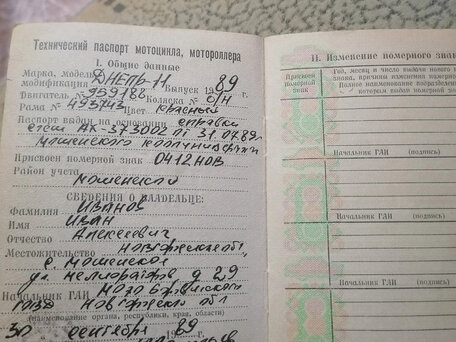 Технический паспорт мотоцикла, мотороллера
I. Общие данные
Марка, модель, модификация ДНЕПР-11
Выпуск 1989 г.
Двигатель № 959188 Коляска № б/н
Рама № 495743 Цвет красный
Паспорт выдан на основании справки
счет АХ-373002 от 31.07.89г
Мошенского
Присвоен номерной знак 0412НОВ
Район учета
Мошенской
СВЕДЕНИЯ О ВЛАДЕЛЬЦЕ:
Фамилия ИВАНОВ
Имя ИВАН
Отчество Алексеевич
Местожительство Новгородская обл
с. Мошенское
ул. мелиораторов д 29
Начальник ГАИ
Новгородской обл
(наименование органа, республики, края, области)
30 сентября 1989 г.
II. Изменение номерного зна
Присвоен номерной знак
Год, месяц и число выдачи нового
знака, причины изменения номерного
Наименование подразделения
которым выдан номерной зна
Начальник ГАИ (подпись)
Начальник ГАИ (подпись)
Начальник ГАИ (подпись)